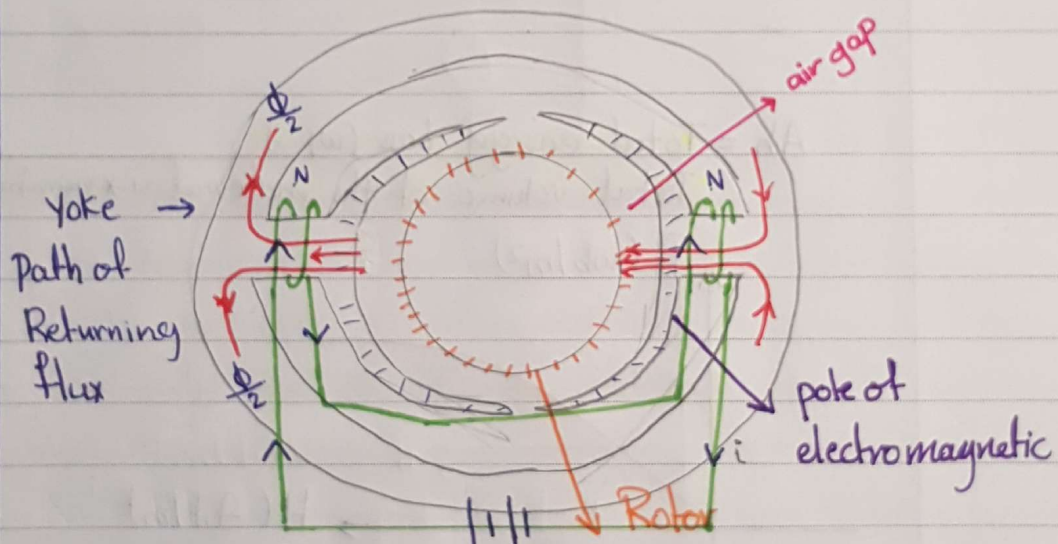 air gap
ϕ/2
N
N
Yoke →
Path of
Returning
flux
ϕ/2
pole of
electromagnetic
i
Rotor